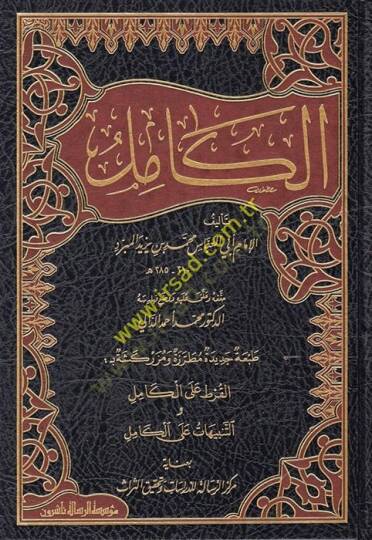 الكَامِلُ
تأليف
الإمام أبي العباس محمد بن يزيد المبرد
٢٨٥ هـ
الدكتور محمد أحمد الدالي
طبعة جديدة مطرزة ومزركشة بـ:
القُرط على الكَامِل
و
التنبيهات على الكَامِل
بعناية
مركز الرسالة للدراسات وتحقيق التراث
مؤسسة الرسالة ناشرون
www.irsad.com.tr